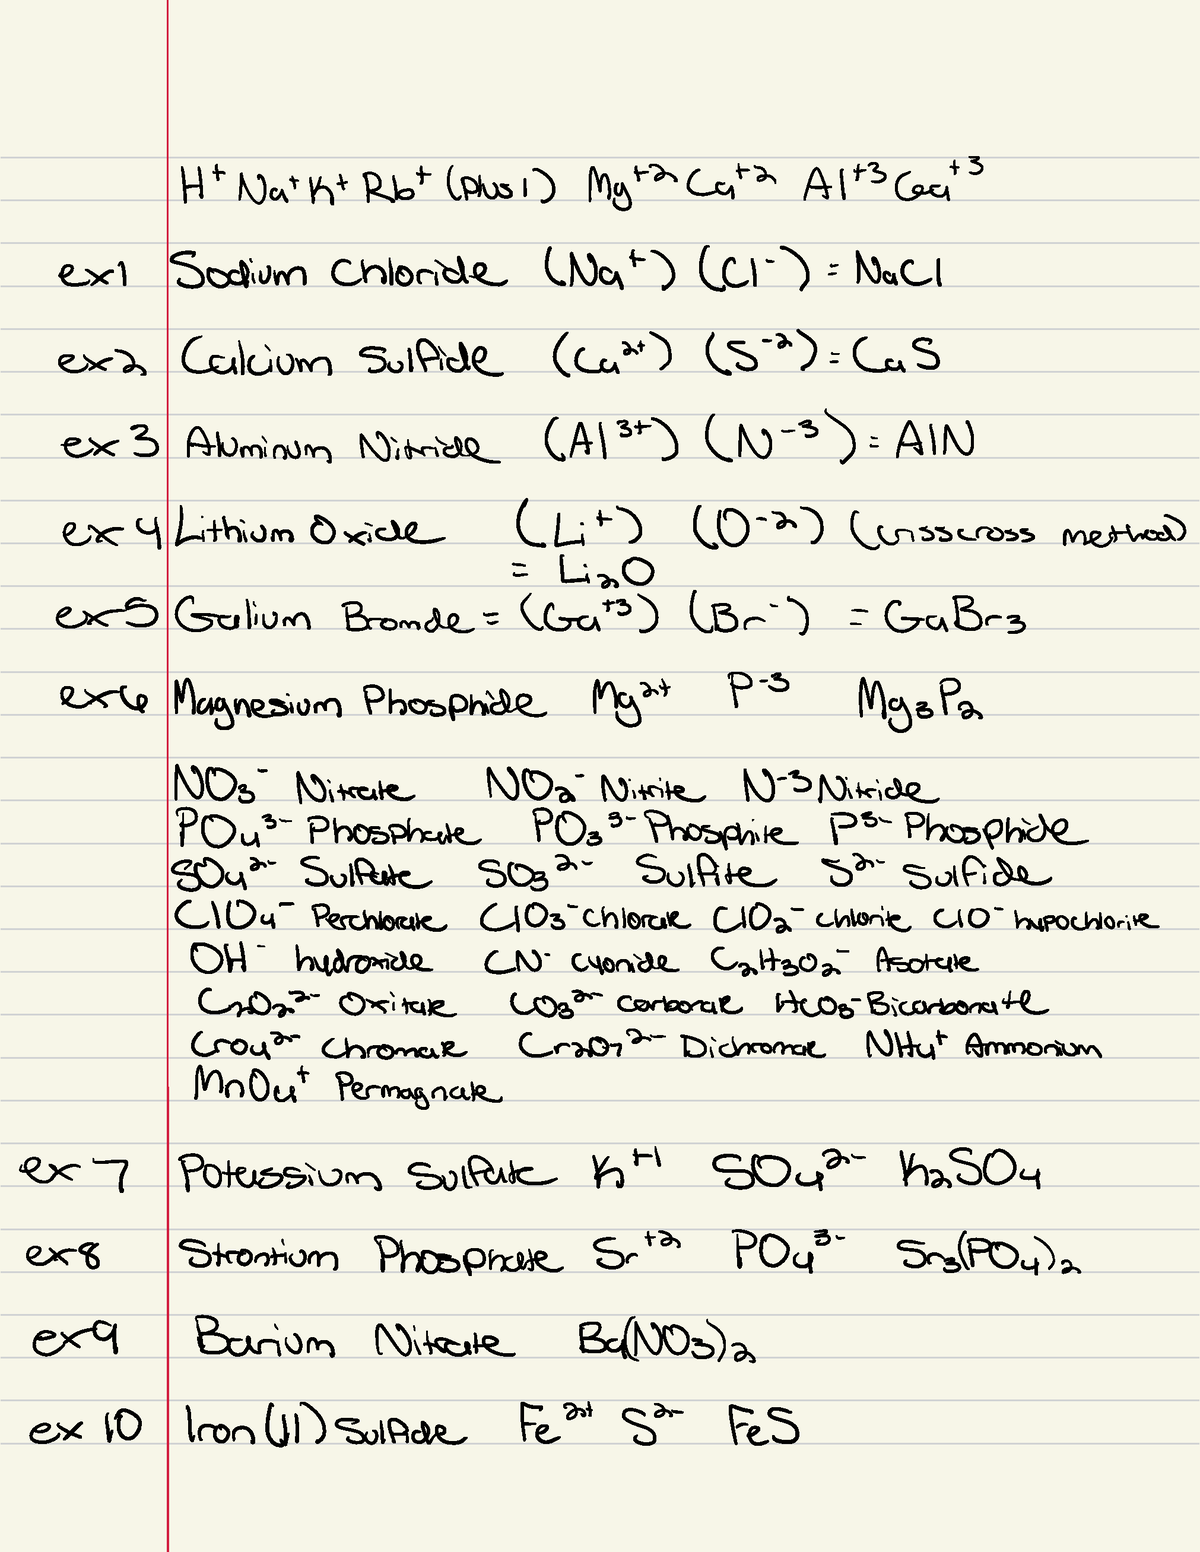 H⁺ Na⁺ K⁺ Rb⁺ (plus 1) Mg⁺² Ca⁺² Al⁺³ Ga⁺³
ex1 Sodium Chloride (Na⁺) (Cl⁻) = NaCl
ex2 Calcium Sulfide (Ca²⁺) (S⁻²) = CaS
ex 3 Aluminum Nitride (Al³⁺) (N⁻³) = AlN
ex 4 Lithium Oxide (Li⁺) (O⁻²) (crisscross method)
= Li₂O
ex5 Galium Bromde = (Ga⁺³) (Br⁻) = GaBr₃
ex6 Magnesium Phosphide Mg²⁺ P⁻³ Mg₃P₂
NO₃⁻ Nitrate NO₂⁻ Nitrite N⁻³ Nitride
PO₄³⁻ Phosphate PO₃³⁻ Phosphite P³⁻ Phosphide
SO₄²⁻ Sulfate SO₃²⁻ Sulfite S²⁻ Sulfide
ClO₄⁻ Perchlorate ClO₃⁻ chlorate ClO₂⁻ chlorite ClO⁻ hypochlorite
OH⁻ hydroxide CN⁻ cyanide C₂H₃O₂⁻ Asotate
C₂O₂²⁻ Oxitate CO₃²⁻ carbonate HCO₃⁻ Bicarbonate
CrO₄²⁻ Chromate Cr₂O₇²⁻ Dichromate NH₄⁺ Ammonium
MnO₄⁺ Permagnate
ex 7 Potassium Sulfate K⁺¹ SO₄²⁻ K₂SO₄
ex8 Strontium Phosphate Sr⁺² PO₄³⁻ Sr₃(PO₄)₂
ex9 Barium Nitrate Ba(NO₃)₂
ex 10 Iron (II) Sulfide Fe²⁺ S²⁻ FeS